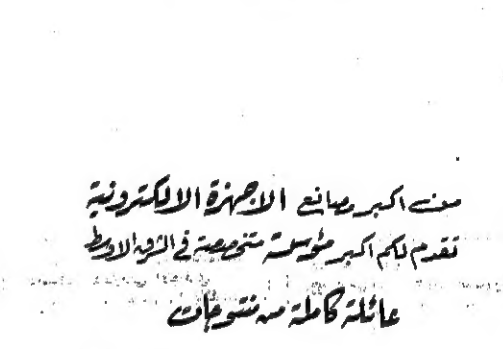 من اكبر مصانع الاجهزة الالكترونية
تقدم لكم اكبر مؤسسة متخصصة في الشرق الاوسط
عائلة كاملة من منتوجات